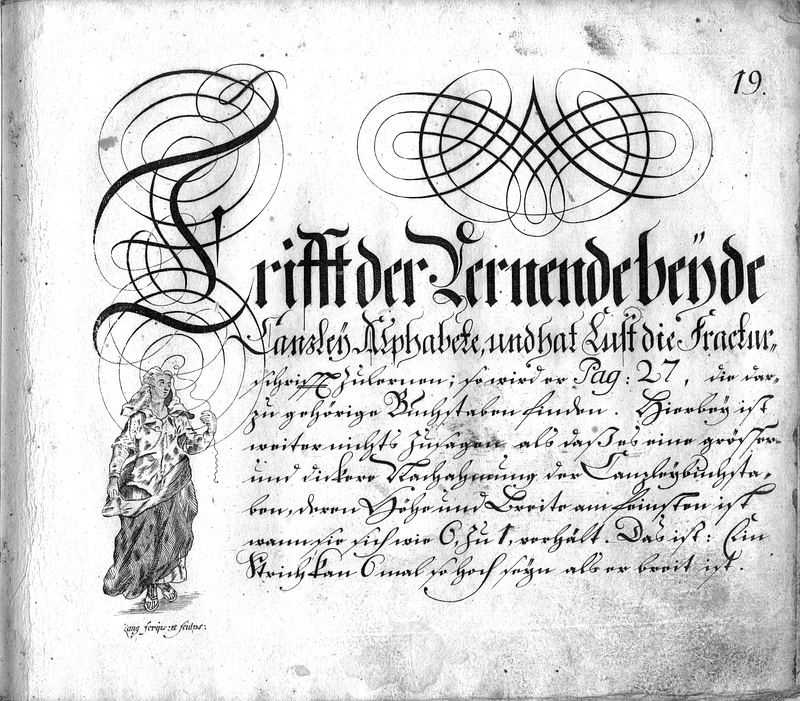 19.
Trifft der Lernende beÿde
Canzleÿ Alphabete, und hat Lust die Fractur-
schrifft Zulernen; so wird er Pag: 27, die dar-
zu gehörige Buchstaben finden. Hierbeÿ ist
weiter nichts Zusagen als daß es eine grösser
und dickere Nachahmung der Canzleÿbuchsta-
ben, deren Höhe und Breite am feinsten ist
wann sie sich wie 6, Zu 1, verhält. Das ist: Ein
Strich kan 6 mal so hoch seÿn als er breit ist.
Lang scrips: et sculps: